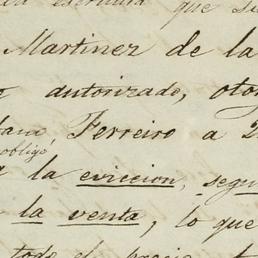 escritura que se
Martinez de la
autorizado, oto
Ferreiro a 2
obligé
a la eviccion, segu
la venta, lo que
todo el precio